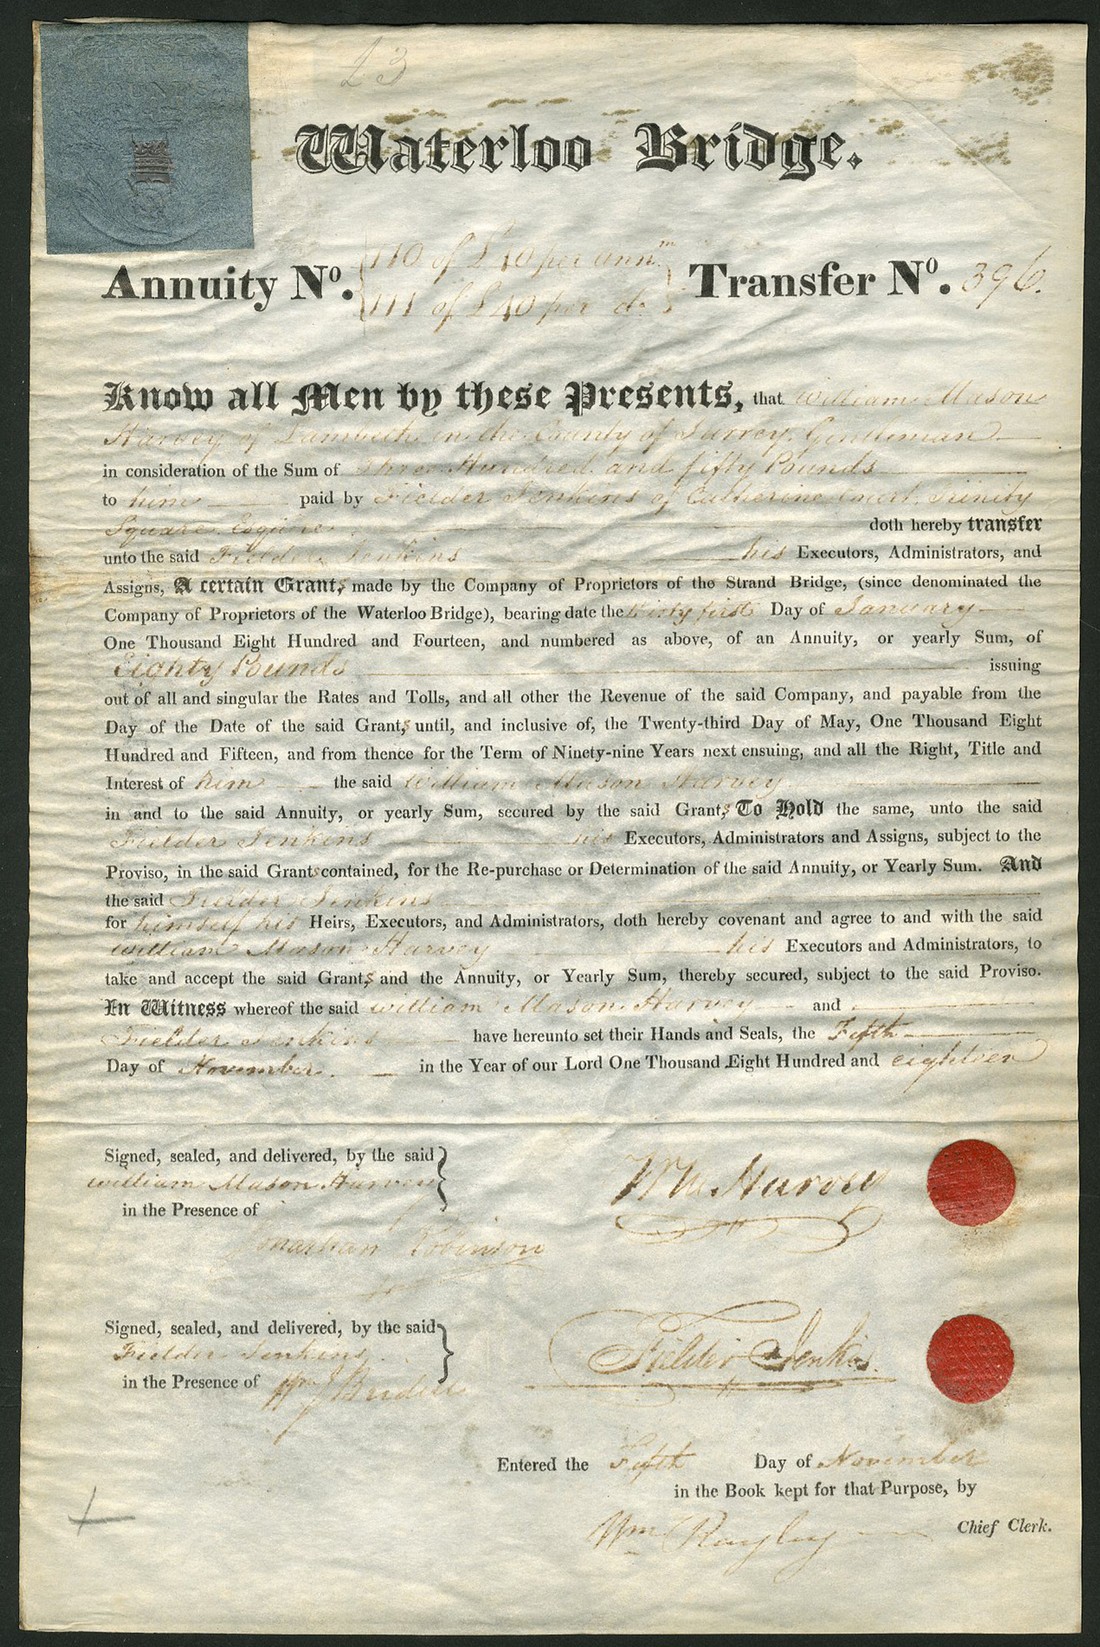 THREE
POUNDS
£3
Waterloo Bridge.
Annuity No. {110 of £40 per annm
111 of £40 per do} Transfer No. 396.
Know all Men by these Presents, that William Mason
Harvey of Lambeth in the County of Surrey, Gentleman
in consideration of the Sum of Three Hundred and fifty Pounds
to him paid by Fielder Jenkins of Catherine Court Trinity
Square Esquire doth hereby transfer
unto the said Fielder Jenkins his Executors, Administrators, and
Assigns, A certain Grants made by the Company of Proprietors of the Strand Bridge, (since denominated the
Company of Proprietors of the Waterloo Bridge), bearing date the thirty first Day of January
One Thousand Eight Hundred and Fourteen, and numbered as above, of an Annuity, or yearly Sum, of
Eighty Pounds issuing
out of all and singular the Rates and Tolls, and all other the Revenue of the said Company, and payable from the
Day of the Date of the said Grants, until, and inclusive of, the Twenty-third Day of May, One Thousand Eight
Hundred and Fifteen, and from thence for the Term of Ninety-nine Years next ensuing, and all the Right, Title and
Interest of him the said William Mason Harvey
in and to the said Annuity, or yearly Sum, secured by the said Grants, To Hold the same, unto the said
Fielder Jenkins his Executors, Administrators and Assigns, subject to the
Proviso, in the said Grants contained, for the Re-purchase or Determination of the said Annuity, or Yearly Sum. And
the said Fielder Jenkins
for himself his Heirs, Executors, and Administrators, doth hereby covenant and agree to and with the said
William Mason Harvey his Executors and Administrators, to
take and accept the said Grants, and the Annuity, or Yearly Sum, thereby secured, subject to the said Proviso.
In Witness whereof the said William Mason Harvey and
Fielder Jenkins have hereunto set their Hands and Seals, the Fifth
Day of November in the Year of our Lord One Thousand Eight Hundred and eighteen
Signed, sealed, and delivered, by the said
William Mason Harvey
in the Presence of
Jonathan Robinson
Wm. Harvey
Signed, sealed, and delivered, by the said
Fielder Jenkins
in the Presence of Wm J
Fielder Jenkins
Entered the Fifth Day of November
in the Book kept for that Purpose, by
Wm Rayley Chief Clerk.